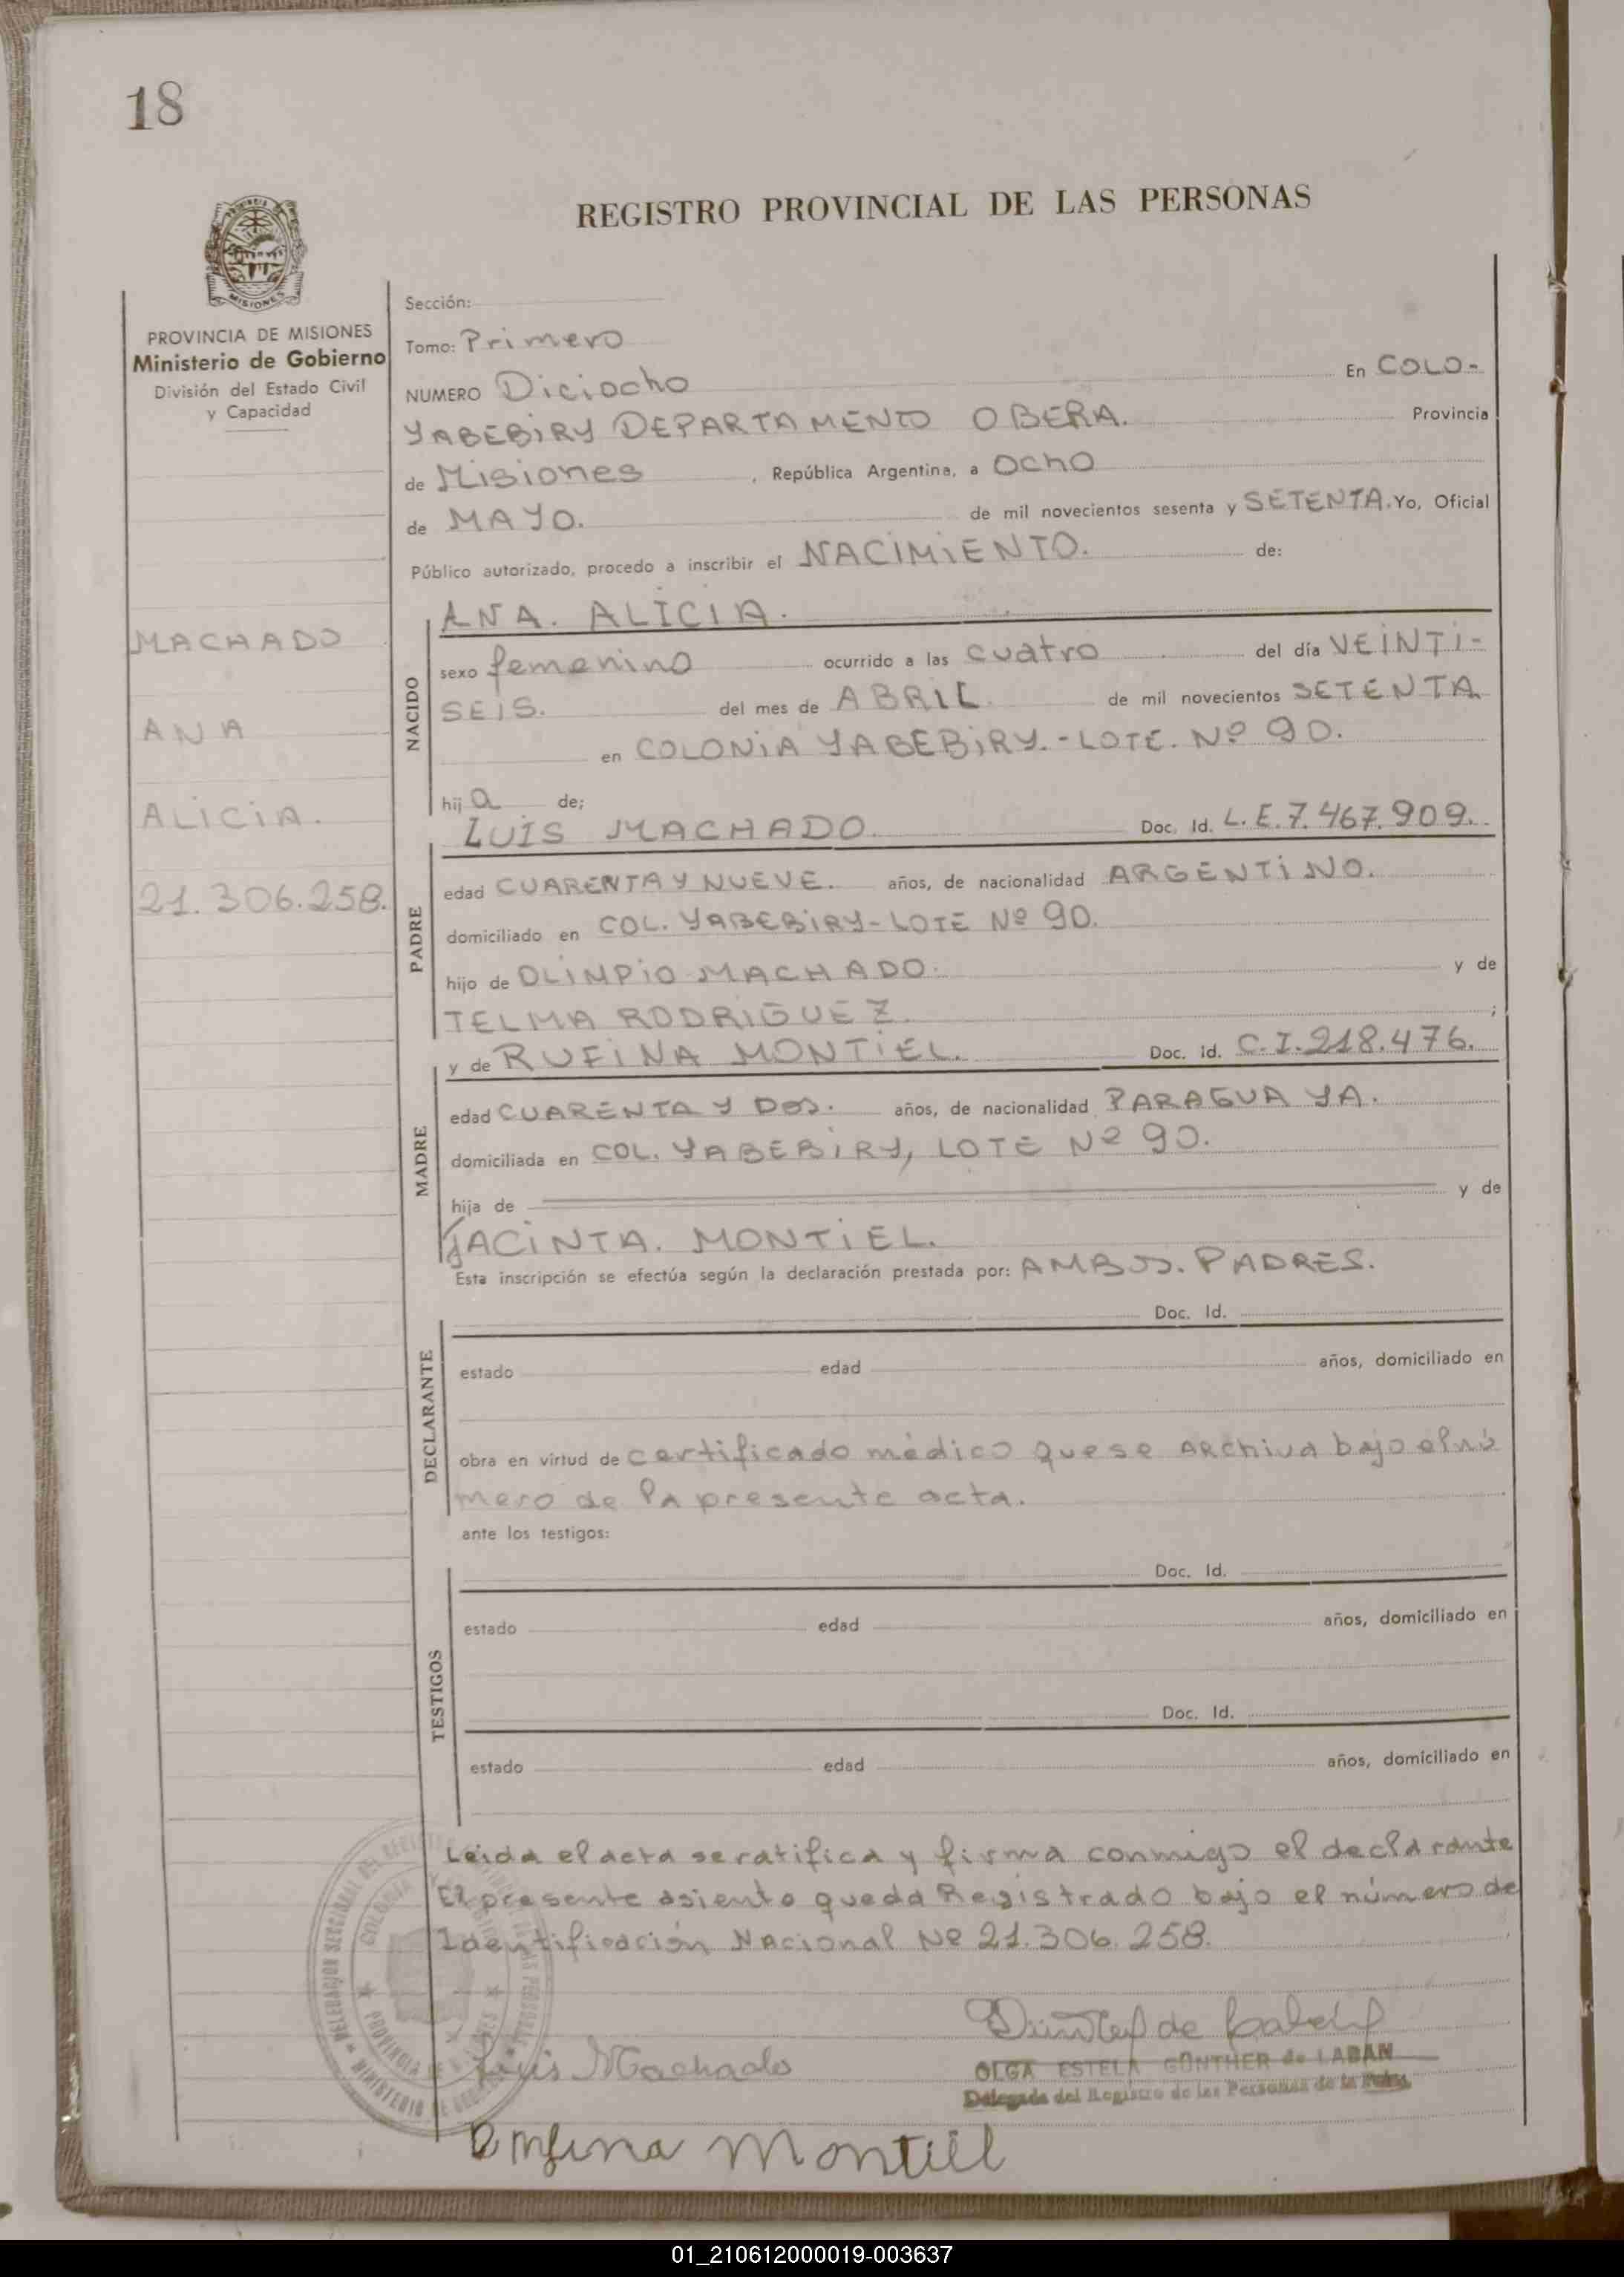 18
REGISTRO PROVINCIAL DE LAS PERSONAS
MISIONES
PROVINCIA DE MISIONES
Ministerio de Gobierno
División del Estado Civil
y Capacidad
MACHADO
ANA
ALICIA.
21.306.258.
Sección:
Tomo: Primero
NUMERO Diciocho En COLO-
YABEBIRY DEPARTAMENTO OBERA. Provincia
de Misiones, República Argentina, a OCHO
de MAYO. de mil novecientos sesenta y SETENTA. Yo, Oficial
Público autorizado, procedo a inscribir el NACIMIENTO. de:
ANA. ALICIA.
NACIDO
sexo femenino ocurrido a las cuatro del día VEINTI-
SEIS. del mes de ABRIL de mil novecientos SETENTA
en COLONIA YABEBIRY.-LOTE. Nº 90.
hij a de;
LUIS MACHADO. Doc. Id. L.E.7.467.909.
PADRE
edad CUARENTA Y NUEVE. años, de nacionalidad ARGENTINO.
domiciliado en COL. YABEBIRY-LOTE Nº 90.
hijo de OLIMPIO MACHADO. y de
TELMA RODRIGUEZ. ;
y de RUFINA MONTIEL. Doc. id. C.I.218.476.
MADRE
edad CUARENTA Y DOS. años, de nacionalidad PARAGUAYA.
domiciliada en COL. YABEBIRY, LOTE Nº 90.
hija de y de
JACINTA. MONTIEL.
Esta inscripción se efectúa según la declaración prestada por: AMBOS. PADRES.
Doc. Id.
DECLARANTE
estado edad años, domiciliado en
obra en virtud de certificado médico que se archiva bajo el nú
mero de la presente acta.
ante los testigos:
Doc. Id.
TESTIGOS
estado edad años, domiciliado en
Doc. Id.
estado edad años, domiciliado en
Leida el acta se ratifica y firma conmigo el declarante
El presente asiento queda Registrado bajo el número de
Identificación Nacional Nº 21.306.258.
DELEGACION SECCIONAL DEL REGISTRO
COLONIA
PROVINCIA DE MISIONES
MINISTERIO DE
Luis Machado
OLGA ESTELA GÜNTHER de LABAN
Delegada del Registro de las Personas de la
Montiel
01_210612000019-003637